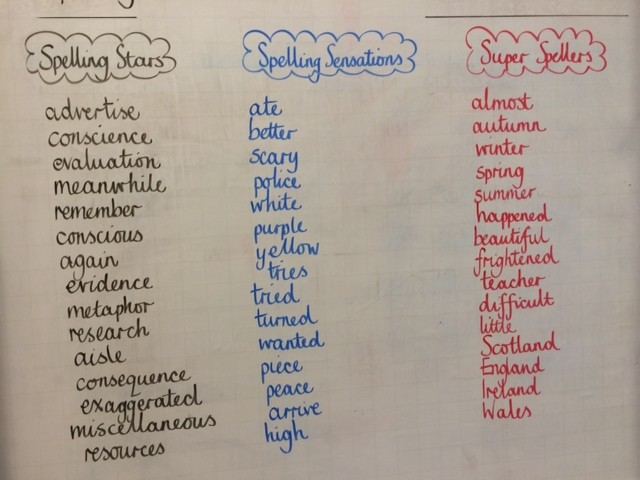 Spelling Stars
advertise
conscience
evaluation
meanwhile
remember
conscious
again
evidence
metaphor
research
aisle
consequence
exaggerated
miscellaneous
resources
Spelling Sensations
ate
better
scary
police
white
purple
yellow
tries
tried
turned
wanted
piece
peace
arrive
high
Super Spellers
almost
autumn
winter
spring
summer
happened
beautiful
frightened
teacher
difficult
little
Scotland
England
Ireland
Wales